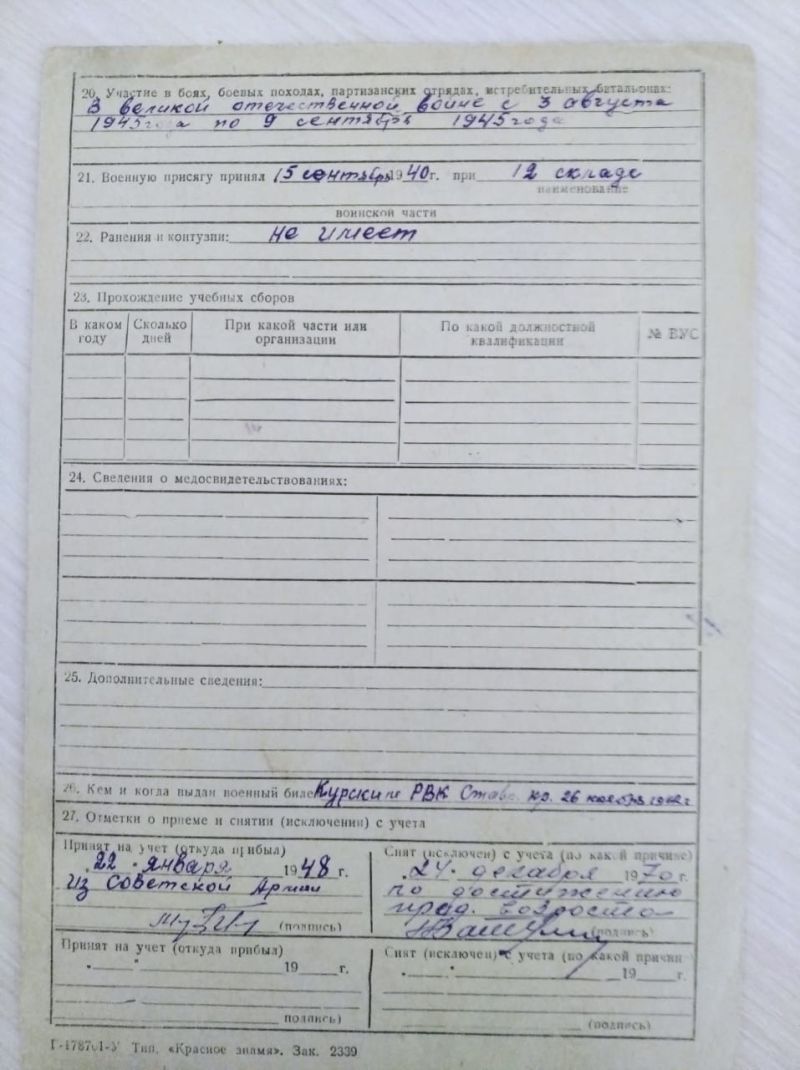 20. Участие в боях, боевых походах, партизанских отрядах, истребительных батальонах:
В великой отечественной войне с 3 августа
1945 года по 9 сентябрь 1945 года
21. Военную присягу принял 15 сентябрь 1940 г. при 12 складе
наименование
воинской части
22. Ранения и контузии: не имеет
23. Прохождение учебных сборов
В каком году Сколько дней При какой части или организации По какой должностной квалификации № ВУС
24. Сведения о медосвидетельствованиях:
25. Дополнительные сведения:
26. Кем и когда выдан военный биле Курским РВК Став. кр. 26 ноября
27. Отметки о приеме и снятии (исключении) с учета
Принят на учет (откуда прибыл)
22 января 1948 г.
из Советской Армии
(подпись)
Снят (исключен) с учета (по какой причине)
24 декабря 1970 г.
по достижению
пред. возраста
(подпись)
Принят на учет (откуда прибыл)
" " 19 г.
подпись)
Снят (исключен) с учета (по какой причин
" " 19 г.
(подпись)
Тип. «Красное знамя». Зак. 2339